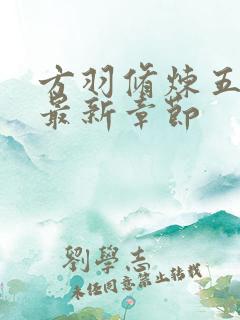 方羽脩炼五
最新章節
劉學志
未经同意禁止转载